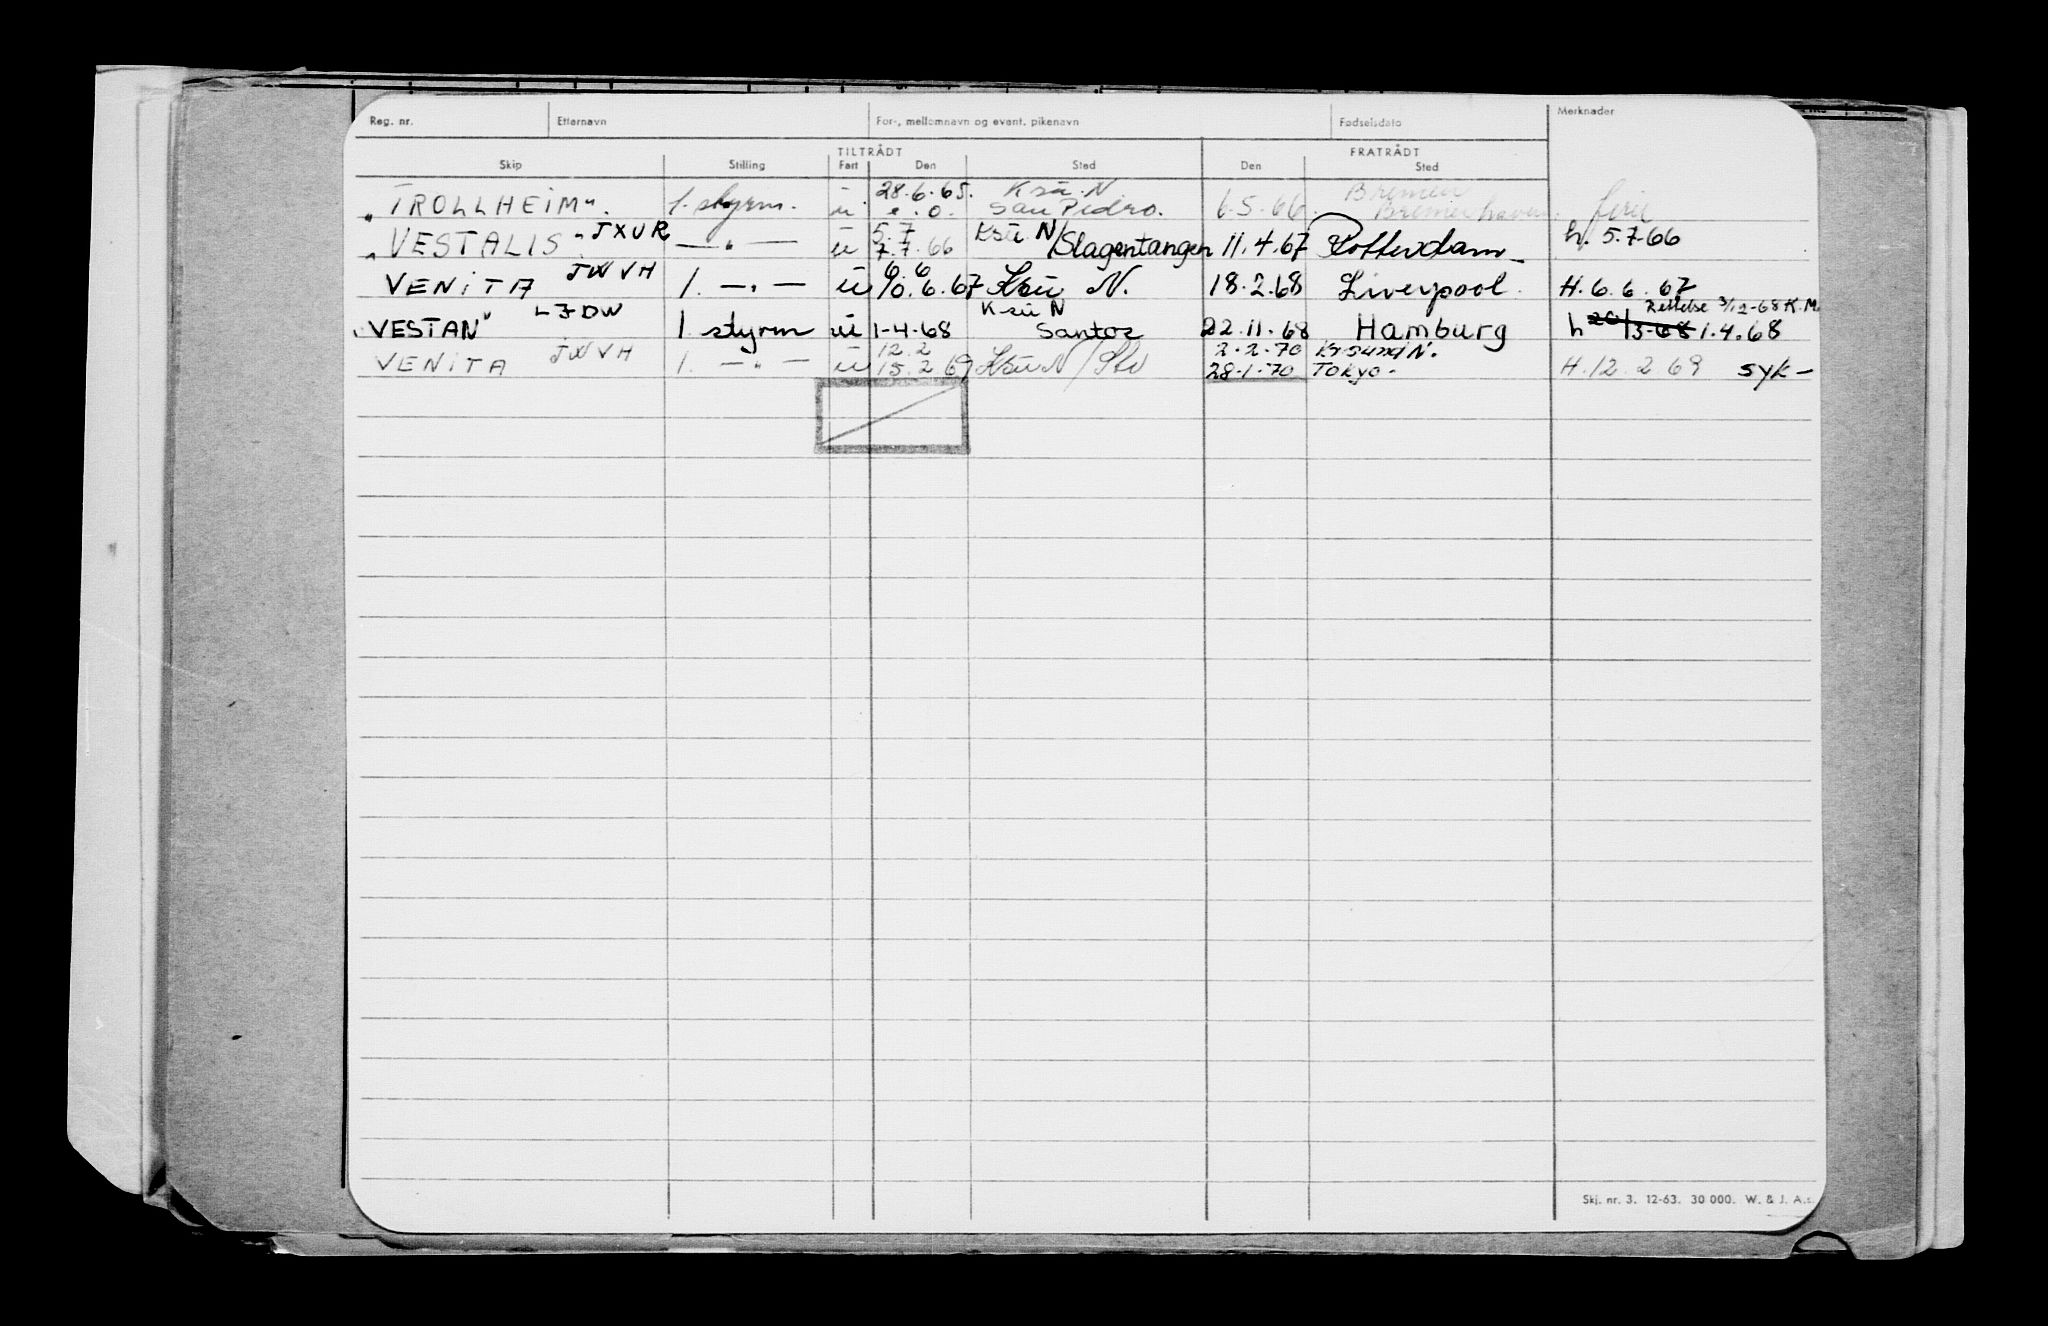 Reg. nr. Etternavn For-, mellomnavn og event. pikenavn Fødselsdato Merknader
TILTRÅDT FRATRÅDT
Skip Stilling Fart Den Sted Den Sted
28.6.65. Ksü. N. Bremen
"TROLLHEIM". 1. styrm. ü e.o. San Pedro. 6.5.66. Bremerhaven. ferie
"VESTALIS" JXUR —"— ü 5.7 7.7.66 Ksü. N/Slagentangen 11.4.67 Rotterdam h. 5.7.66
VENITA JWVH 1. —"— ü 6.6 10.6.67 Ksü N. 18.2.68 Liverpool. H. 6.6.67
Rettelse 3/12-68 K.M.
"VESTAN" LJDW 1. styrm ü 1-4-68 Ksü N Santos 22.11.68 Hamburg h 20/3-68 1.4.68
12.2 2.2.70 Krsund N.
VENITA JWVH 1. —"— ü 15.2 69 Ksü N/ 28.1.70 Tokyo. H. 12.2.69 syk-
Skj. nr. 3. 12-63. 30 000. W. & J. A.s.